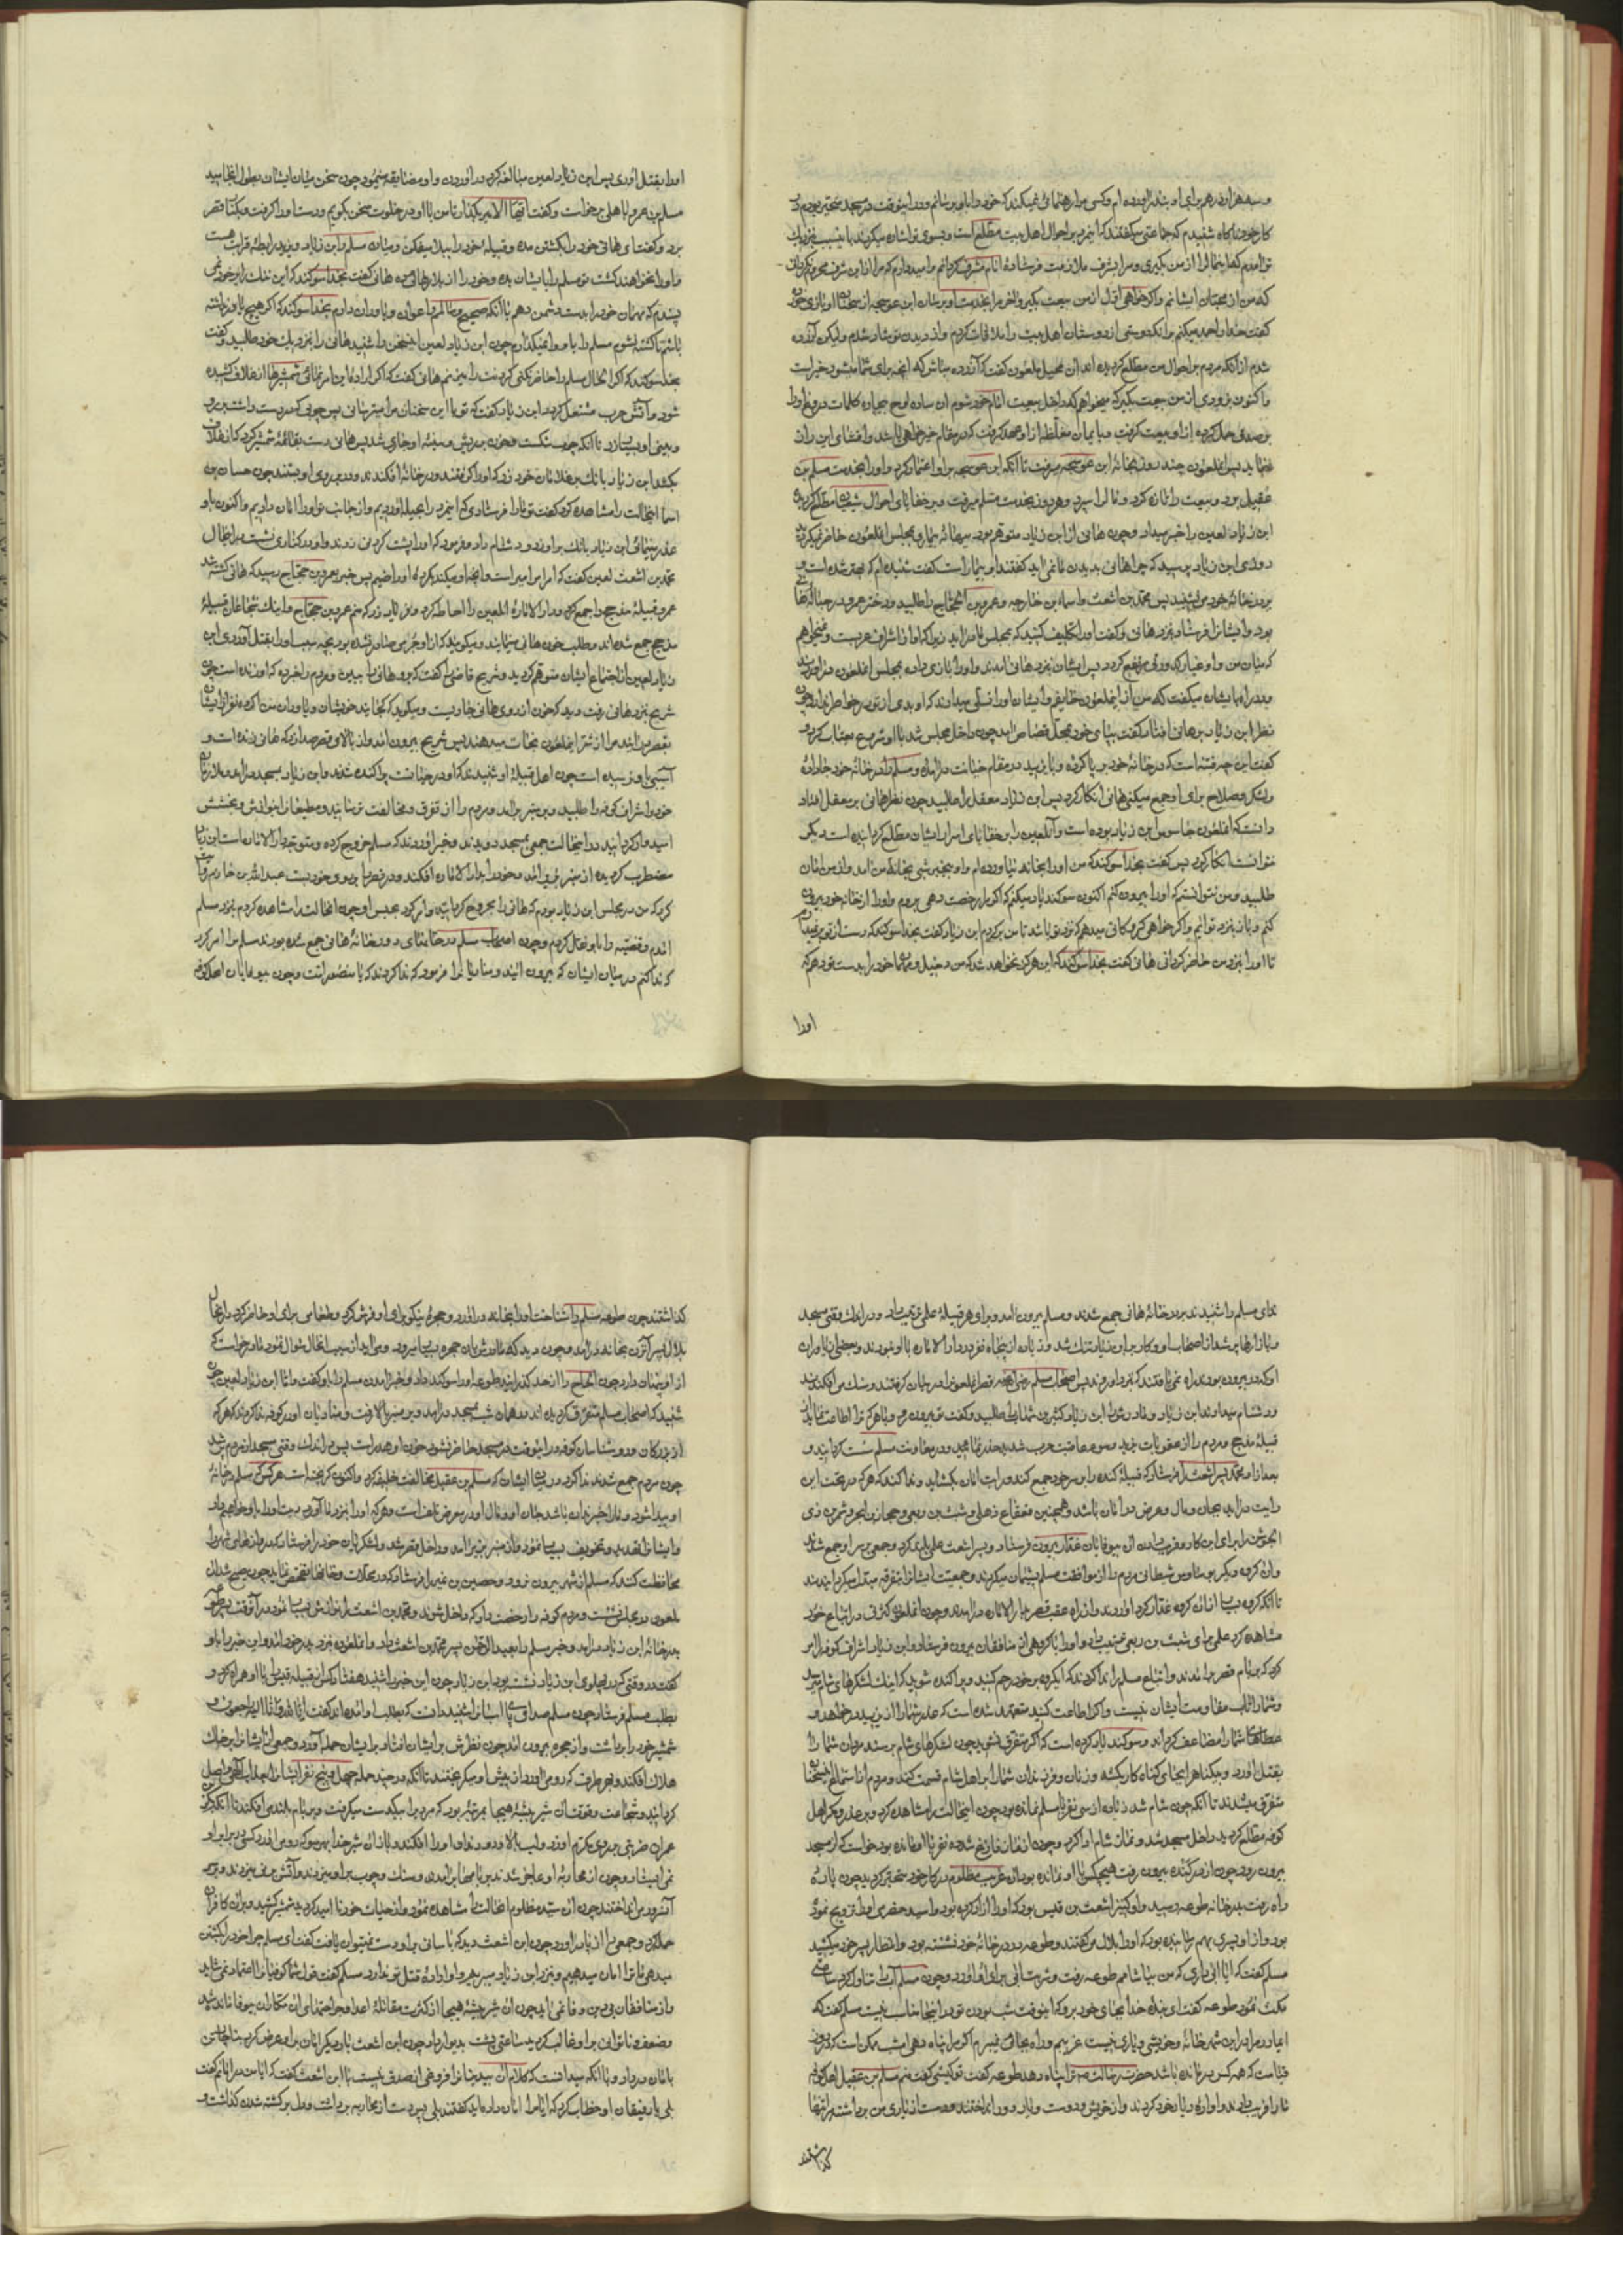 و سه هزار درهم برای او بنذر آورده ام و کسی مرا رهنمائی نمیکند که خود را باو برسانم و در اینوقت در مسجد متحیر بودم در
کار خود ناکاه شنیدم که جماعتی میکفتند که اینمرد بر احوال اهل بیت مطلع است و بسوی تو اشاره میکردند باینسبب بنزدیک
تو آمدم که این مال را از من بکیری و مرا بشرف ملازمت فرستاده امام مشرف کردانی و امیدوارم که مرا از این شرف محروم نکردانی
که من از محبان ایشانم و اکر خواهی اول از من بیعت بکیر و آخر مرا بخدمت او برسان ابن عوسجه از سخنان او بازی خورده
کفت خدا را حمد میکنم بر آنکه دوستی از دوستان اهل بیت را ملاقات کردم و از دیدن تو شاد شدم ولیکن آزرده
شدم از آنکه مردم بر احوال من مطلع کردیده اند آن محیل ملعون کفت که آزرده مباش که آنچه برای شما میشود خیر است
و اکنون بزودی از من بیعت بکیر که میخواهم که داخل بیعت امام خود شوم آن ساده لوح بیچاره کلمات دروغ او را
بر صدق حمل کرده از او بیعت کرفت و بایمان مغلظه از او عهد کرفت که در مقام خیرخواهی باشد و افشای این راز
ننماید پس آنملعون چند روز بخانه ابن عوسجه میرفت تا آنکه ابن عوسجه بر او اعتماد کرد و او را بخدمت مسلم بن
عقیل برد و بیعت را تازه کرد و مال را سپرد و هر روز بخدمت مسلم میرفت و بر خفایای احوال شیعیان مطلع کردیده
ابن زیاد لعین را خبر میداد و چون هانی از ابن زیاد متوهم بود ببهانه بیماری بمجلس آنملعون حاضر نمیکردید
روزی ابن زیاد پرسید که چرا هانی بدیدن ما نمی آید کفتند او بیمار است کفت شنیده ام که بهتر شده است و
بر در خانه خود می نشیند پس محمد بن اشعث و اسماء بن خارجه و عمرو بن الحجاج را طلبید و دختر عمرو در حباله هانی
بود و ایشانرا فرستاد بنزد هانی و کفت او را تکلیف کنید که بمجلس ما در آید زیرا که او از اشراف عربست و نمیخواهم
که میان من و او غبار کدورتی مرتفع کردد پس ایشان بنزد هانی آمدند و او را بازی داده بمجلس آنملعون در آوردند
و در راه بایشان میکفت که من از اینملعون خایفم و ایشان او را تسلی میدادند که او بدی از تو در خاطر ندارد چون
نظر ابن زیاد بر هانی افتاد کفت بپای خود بمحل قصاص آمد چون داخل مجلس شد با او شروع بعتاب کرد و
کفت این چه فتنه است که در خانه خود بر پا کرده و با یزید در مقام خیانت در آمده و مسلم را در خانه خود جا داده
و لشکر و صلاح برای او جمع میکنی هانی انکار کرد پس ابن زیاد معقل را طلبید چون نظر هانی بر معقل افتاد
دانست که آنملعون جاسوس ابن زیاد بوده است و آنلعین را بر خفایای اسرار ایشان مطلع کردانیده است دیکر
نتوانست انکار کرد پس کفت بخدا سوکند که من او را بخانه نیاورده ام و او بیخبر شبی بخانه من آمد و از من امان
طلبید و من نتوانستم که او را بیرون کنم اکنون سوکند یاد میکنم که اکر مرا رخصت دهی بروم و او را از خانه خود بیرون
کنم و باز بنزد تو آیم و اکر خواهی کروکانی میدهم که نزد تو باشد تا من برکردم ابن زیاد کفت بخدا سوکند که دست از تو بر نمیدارم
تا او را بنزد من حاضر کردانی هانی کفت بخدا سوکند که این هرکز نخواهد شد که من دخیل و مهمان خود را بدست تو دهم که
او را
او را بقتل آوری پس ابن زیاد لعین مبالغه کرد در آوردن و او مضایقه مینمود چون سخن میان ایشان بطول انجامید
مسلم بن عمرو باهلی برخواست و کفت ایها الامیر بکذار تا من با او در خلوت سخن بکویم و دست او را کرفت و بکنار قصر
برد و کفت ای هانی خود را بکشتن مده و قبیله خود را ببلا میفکن و میان مسلم و ابن زیاد و یزید رابطه قرابت هست
و او را نخواهند کشت تو مسلم را بایشان بده و خود را از بلا رها کن هانی کفت بخدا سوکند که این ننک را بر خود نمی
پسندم که مهمان خود را بدست دشمن دهم با آنکه صحیح و سالمم و اعوان و یاوران دارم بخدا سوکند که اکر هیچ یاور نداشته
باشم تا کشته نشوم مسلم را باو وا نمیکذارم چون ابن زیاد لعین اینسخن را شنید هانی را بنزدیک خود طلبید و کفت
بخدا سوکند که اکر الحال مسلم را حاضر نکنی کردنت را میزنم هانی کفت که اکر اراده این امر نمائی شمشیرها از غلاف کشیده
شود و آتش حرب مشتعل کردد ابن زیاد کفت که تو با این سخنان مرا میترسانی پس چوبی که در دست داشت بر رو
و بینی او بسیار زد تا آنکه چوب شکست و خون بر ریش و سینه او جاری شد پس هانی دست بقائمه شمشیر کرد که از غلاف
بکشد ابن زیاد بانک بر غلامان خود زد که او را کرفتند و در خانه افکندند و در بر روی او بستند چون حسان بن
اسما اینحالت را مشاهده کرد کفت تو ما را فرستادی که اینمرد را بحیله آوردیم و از جانب تو او را امان دادیم و اکنون با او
غدر مینمائی ابن زیاد بانک بر او زد و دشنام داد و فرمود که او را پشت کردنی زدند و او در کناری نشست در اینحال
محمد بن اشعث لعین کفت که امر امر امیر است و آنچه او میکند بکرده او راضیم پس خبر بعمرو بن حجاج رسید که هانی کشته شد
عمرو قبیله مذحج را جمع کرد و دار الاماره آنلعین را احاطه کرد و فریاد زد که منم عمرو بن حجاج و اینک شجاعان قبیله
مذحج جمع شده اند و طلب خون هانی مینمایند و میکویند که از او جرمی صادر نشده بود بچه سبب او را بقتل آوردی ابن
زیاد لعین از اجتماع ایشان متوهم کردید و شریح قاضی را کفت که برو هانی را ببین و مردم را خبر ده که او زنده است چون
شریح بنزد هانی رفت دید که خون از روی هانی جاریست و میکوید که کجایند خویشان و یاوران من اکر ده نفر از ایشان
بقصر من آیند مرا از شر اینملعون نجات میدهند پس شریح بیرون آمد و از بالای قصر صدا زد که هانی زنده است و
آسیبی باو نرسیده است چون اهل قبیله او شنیدند که او در حیات پراکنده شدند و ابن زیاد بمسجد در آمد و ملازمان
خود و اشراف کوفه را طلبید و بر منبر بر آمد و مردم را از تفرق و مخالفت ترسانید و مطیعان را بنوازش و بخشش
امیدوار کردانید در اینحالت جمعی بمسجد دویدند و خبر آوردند که مسلم خروج کرده و متوجه دار الاماره است ابن زیاد
مضطرب کردیده از منبر بزیر آمد و خود را بدار الاماره افکند و در قصر را بر روی خود بست عبدالله بن خازم روایت
کرد که من در مجلس ابن زیاد بودم که هانی را مجروح کردانید و امر کرد بحبس او چون اینحالت را مشاهده کردم بنزد مسلم
آمدم و قصه را باو نقل کردم و چون اصحاب مسلم در خانهای دور خانه هانی جمع شده بودند مسلم مرا امر کرد
که ندا کنم در میان ایشان که بیرون آئید و منادیانرا فرمود که ندا کردند که یا منصور امت و چون بیوفایان اهل کوفه
ندای مسلم را شنیدند بر در خانه هانی جمع شدند و مسلم بیرون آمد و برای هر قبیله علمی ترتیب داد و در اندک وقتی مسجد
و بازارها پر شد از اصحاب او و کار بر ابن زیاد تنک شد و زیاده از پنجاه نفر در دار الاماره با او نبودند و بعضی از یاوران
او که در بیرون بودند راه نمی یافتند که بنزد او روند پس اصحاب مسلم رضی الله عنه قصر آنملعون را در میان کرفتند و سنک می افکندند
و دشنام میدادند ابن زیاد و مادرش را ابن زیاد کثیر بن شهاب را طلبید و کفت تو بیرون رو و با هر که ترا اطاعت نماید از
قبیله مذحج و مردم را از عقوبات یزید و سوء عاقبت حرب شدید حذر نمائید و در معاونت مسلم سست کردانید و
بعد از او محمد پسر اشعث را فرستاد که قبیله کنده را بر سر خود جمع کند و رایت امان بکشاید و ندا کند که هر که در تحت این
رایت در آید بجان و مال و عرض در امان باشد و همچنین قعقاع ذهلی و شبث بن ربعی و حجار بن ابجر و شمر بن ذی
الجوشن را برای این کار و فریب دادن آن بیوفایان غدار بیرون فرستاد و پسر اشعث علمی بلند کرد و جمعی بر سر او جمع شدند
و آن کروه دیکر بوساوس شیطانی مردم را از موافقت مسلم پشیمان میکردند و جمعیت ایشانرا بتفرقه مبدل میکردانیدند
تا آنکه کروه بسیار از آن کروه غدار کرد آوردند و از راه عقب قصر بدار الاماره در آمدند و چون آنملعون کثرتی در اتباع خود
مشاهده کرد علمی برای شبث بن ربعی ترتیب داد و او را با کروهی از منافقان بیرون فرستاد و ابن زیاد اشراف کوفه را امر
کرد که بر بام قصر بر آمدند و اتباع مسلم را ندا کردند که ای کروه بر خود رحم کنید و پراکنده شوید که اینک لشکرهای شام میرسد
و شما را تاب مقاومت ایشان نیست و اکر اطاعت کنید متعهد شده است که عذر شما را از یزید بخواهد و
عطاهای شما را مضاعف کرداند و سوکند یاد کرده است که اکر متفرق نشوید چون لشکرهای شام برسند مردان شما را
بقتل آورد و بیکناه را بجای کناه کار بکشد و زنان و فرزندان شما را بر اهل شام قسمت کند و مردم از استماع این سخنان
متفرق میشدند تا آنکه چون شام شد زیاده از سی نفر با مسلم نمانده بود چون اینحالت را مشاهده کرد و بر غدر و مکر اهل
کوفه مطلع کردید داخل مسجد شد و نماز شام ادا کرد و چون از نماز فارغ شد ده نفر با او مانده بود خواست که از مسجد
بیرون رود چون از در کنده بیرون رفت هیچکس با او نمانده بود آن غریب مظلوم در کار خود متحیر کردید چون پاره
راه رفت بدر خانه طوعه رسید و او کنیز اشعث بن قیس بود که او را آزاد کرده بود و اسید حضرمی او را تزویج نموده
بود و از او پسری بهم رسانیده بود که او را بلال میکفتند و طوعه بر در خانه خود نشسته بود و انتظار پسر خود میکشید
مسلم کفت که آیا آبی داری که من بیاشامم طوعه رفت و شربت آبی برای او آورد و چون مسلم آب را تناول کرد ساعتی
مکث نمود طوعه کفت ای بنده خدا بجای خود برو که اینوقت شب بودن تو در اینجا مناسب نیست مسلم کفت که
ای مادر مرا در این شهر خانه و خویشی و یاری نیست غریبم و راه بجائی نمیبرم اکر مرا پناه دهی امشب ممکن است که در روز
قیامت که همه کس درمانده باشد حضرت رسالت ترا پناه دهد طوعه کفت تو کیستی کفت منم مسلم بن عقیل اهل کوفه
ما را فریب دادند و آواره دیار خود کردند و از خویش و دوست و یار دور انداختند و دست از یاری من برداشته مرا تنها
کذاشتند
کذاشتند چون طوعه مسلم را شناخت او را بخانه در آورد و حجره نیکو برای او فرش کرد و طعامی برای او حاضر کرد در اینحال
بلال پسر آنزن بخانه در آمد و چون دید که مادرش بآن حجره بسیار میرود و می آید از سبب اینحال سئوال نمود مادر خواست که
از او پنهان دارد چون الحاح را از حد کذرانید طوعه او را سوکند داد و خبر آمدن مسلم را باو کفت و اما ابن زیاد لعین چون
شنید که اصحاب مسلم متفرق کردیده اند در همان شب بمسجد در آمد و بر منبر بالا رفت و منادیان او در کوفه ندا کردند که هر که
از بزرکان و روشناسان کوفه در اینوقت در مسجد حاضر نشود خون او هدر است پس در اندک وقتی مسجد از مردم پر شد
چون مردم جمع شدند ندا کرد در میان ایشان که مسلم بن عقیل مخالفت خلیفه کرد و اکنون کریخته است هر کس که مسلم در خانه
او پیدا شود و ما را خبر نداده باشد جان او و مال او در معرض تلف است و هر که او را بنزد ما آورد دیت او را باو خواهم داد
و ایشانرا تهدید و تخویف بسیار نمود و از منبر بزیر آمد و داخل قصر شد و لشکریان خود را فرستاد که دروازهای شهر را
محافظت کنند که مسلم از شهر بیرون نرود و حصین بن نمیر را فرستاد که در محلات و خانها تفحص نماید چون صبح شد آن
ملعون در مجلس نشست و مردم کوفه را رخصت داد که داخل شوند و محمد بن اشعث را نوازش بسیار نمود در آنوقت پسر طوعه
بدر خانه ابن زیاد در آمد و خبر مسلم را بعبد الرحمن پسر محمد بن اشعث داد و آنملعون بنزد پدر خود آمد و این خبر را باو
کفت در وقتی که در پهلوی ابن زیاد نشسته بود ابن زیاد چون این خبر را شنید هفتاد کس از قبیله قیس را با او همراه کرد و
بطلب مسلم فرستاد چون مسلم صدای پای اسبان را شنید دانست که بطلب او آمده اند کفت انا لله و انا الیه راجعون و
شمشیر خود را برداشت و از حجره بیرون آمد چون نظرش بر ایشان افتاد بر ایشان حمله آورد و جمعی از ایشانرا بر خاک
هلاک افکند و بهر طرف که رو می آورد از پیش او میکریختند تا آنکه در چند حمله چهل و پنج نفر ایشانرا بعذاب الهی واصل
کردانید و شجاعت و قوت آن شیر بیشه هیجا بمرتبه بود که مردی را بیکدست میکرفت و بر بام بلند می افکند تا آنکه بکر بن
حمران ضربتی بر روی مکرم او زد و لب بالا و دندان او را افکند و باز آن شیر خدا بهر سو که رو می آورد کسی در برابر او
نمی ایستاد و چون از محاربه او عاجز شدند بر بامها بر آمدند و سنک و چوب بر او میزدند و آتش بر نی میزدند و بر سر
آنسرور می انداختند چون آن سید مظلوم آنحالت را مشاهده نمود و از حیات خود نا امید کردید شمشیر کشید و بر آن کافران
حمله کرد و جمعی را از پا در آورد چون ابن اشعث دید که بآسانی بر او دست نمیتوان یافت کفت ای مسلم چرا خود را بکشتن
میدهی ما ترا امان میدهیم و بنزد ابن زیاد میبریم و او اراده قتل تو ندارد مسلم کفت قول شما کوفیان را اعتماد نمی شاید
و از منافقان بی دین وفا نمی آید چون آن شیر بیشه هیجا از کثرت مقاتله اعدا و جراحتهای آن مکاران بیوفا مانده شد
و ضعف و ناتوانی بر او غالب کردید ساعتی پشت بدیوار داد چون ابن اشعث بار دیکر امان بر او عرض کرد بناچار تن
بامان در داد و با آنکه میدانست که کلام آن بیدینانرا فروغی از صدق نیست با ابن اشعث کفت که آیا من در امانم کفت
بلی با رفیقان او خطاب کرد که آیا مرا امان داده اید کفتند بلی پس دست از محاربه برداشت و دل بر کشته شدن کذاشت و